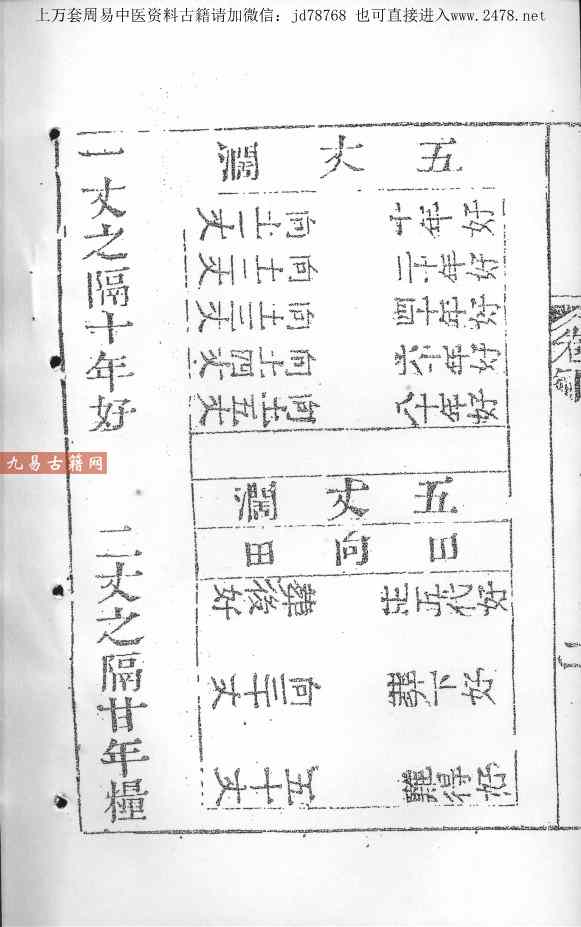 上万套周易中医资料古籍请加微信：jd78768 也可直接进入www.2478.net
五丈濶
十年好
二十年好
四十年好
六十年好
八十年好
向上一丈
向上二丈
向上三丈
向上四丈
向上五丈
五丈濶
向田
好
五代好
下好
難得好
後好
向二十丈
五十丈
一丈之隔十年好
二丈之隔廿年糧
九易古籍网